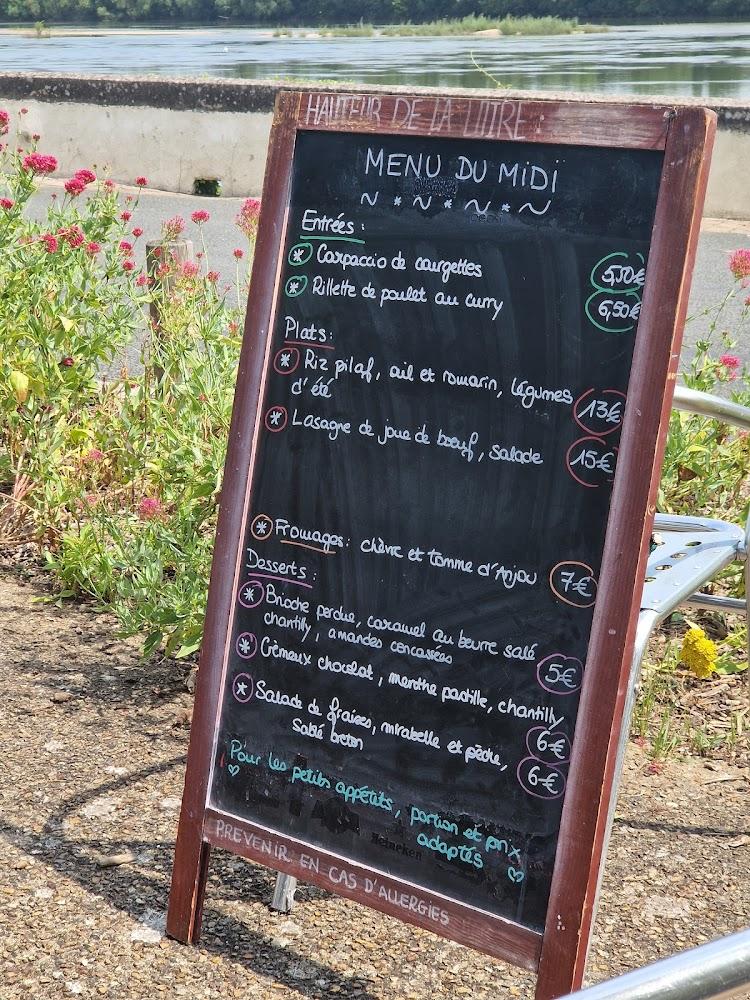 HAUTEUR DE LA LOIRE :
MENU DU MiDi
~ * ~ * ~ * ~
Entrées :
* Carpaccio de courgettes 5,50€
* Rillette de poulet au curry 6,50€
Plats :
* Riz pilaf, ail et romarin, légumes
d'été 13€
* Lasagne de joue de bœuf, salade 15€
* Fromages : chèvre et tomme d'Anjou 7€
Desserts :
* Brioche perdue, caramel au beurre salé
chantilly, amandes concassées 5€
* Crémeux chocolat, menthe pastille, chantilly 6€
* Salade de fraises, mirabelle et pêche,
Sablé breton 6€
Pour les petits appétits, portion et prix
♡ adaptés ♡
Heineken
PREVENIR EN CAS D'ALLERGIES